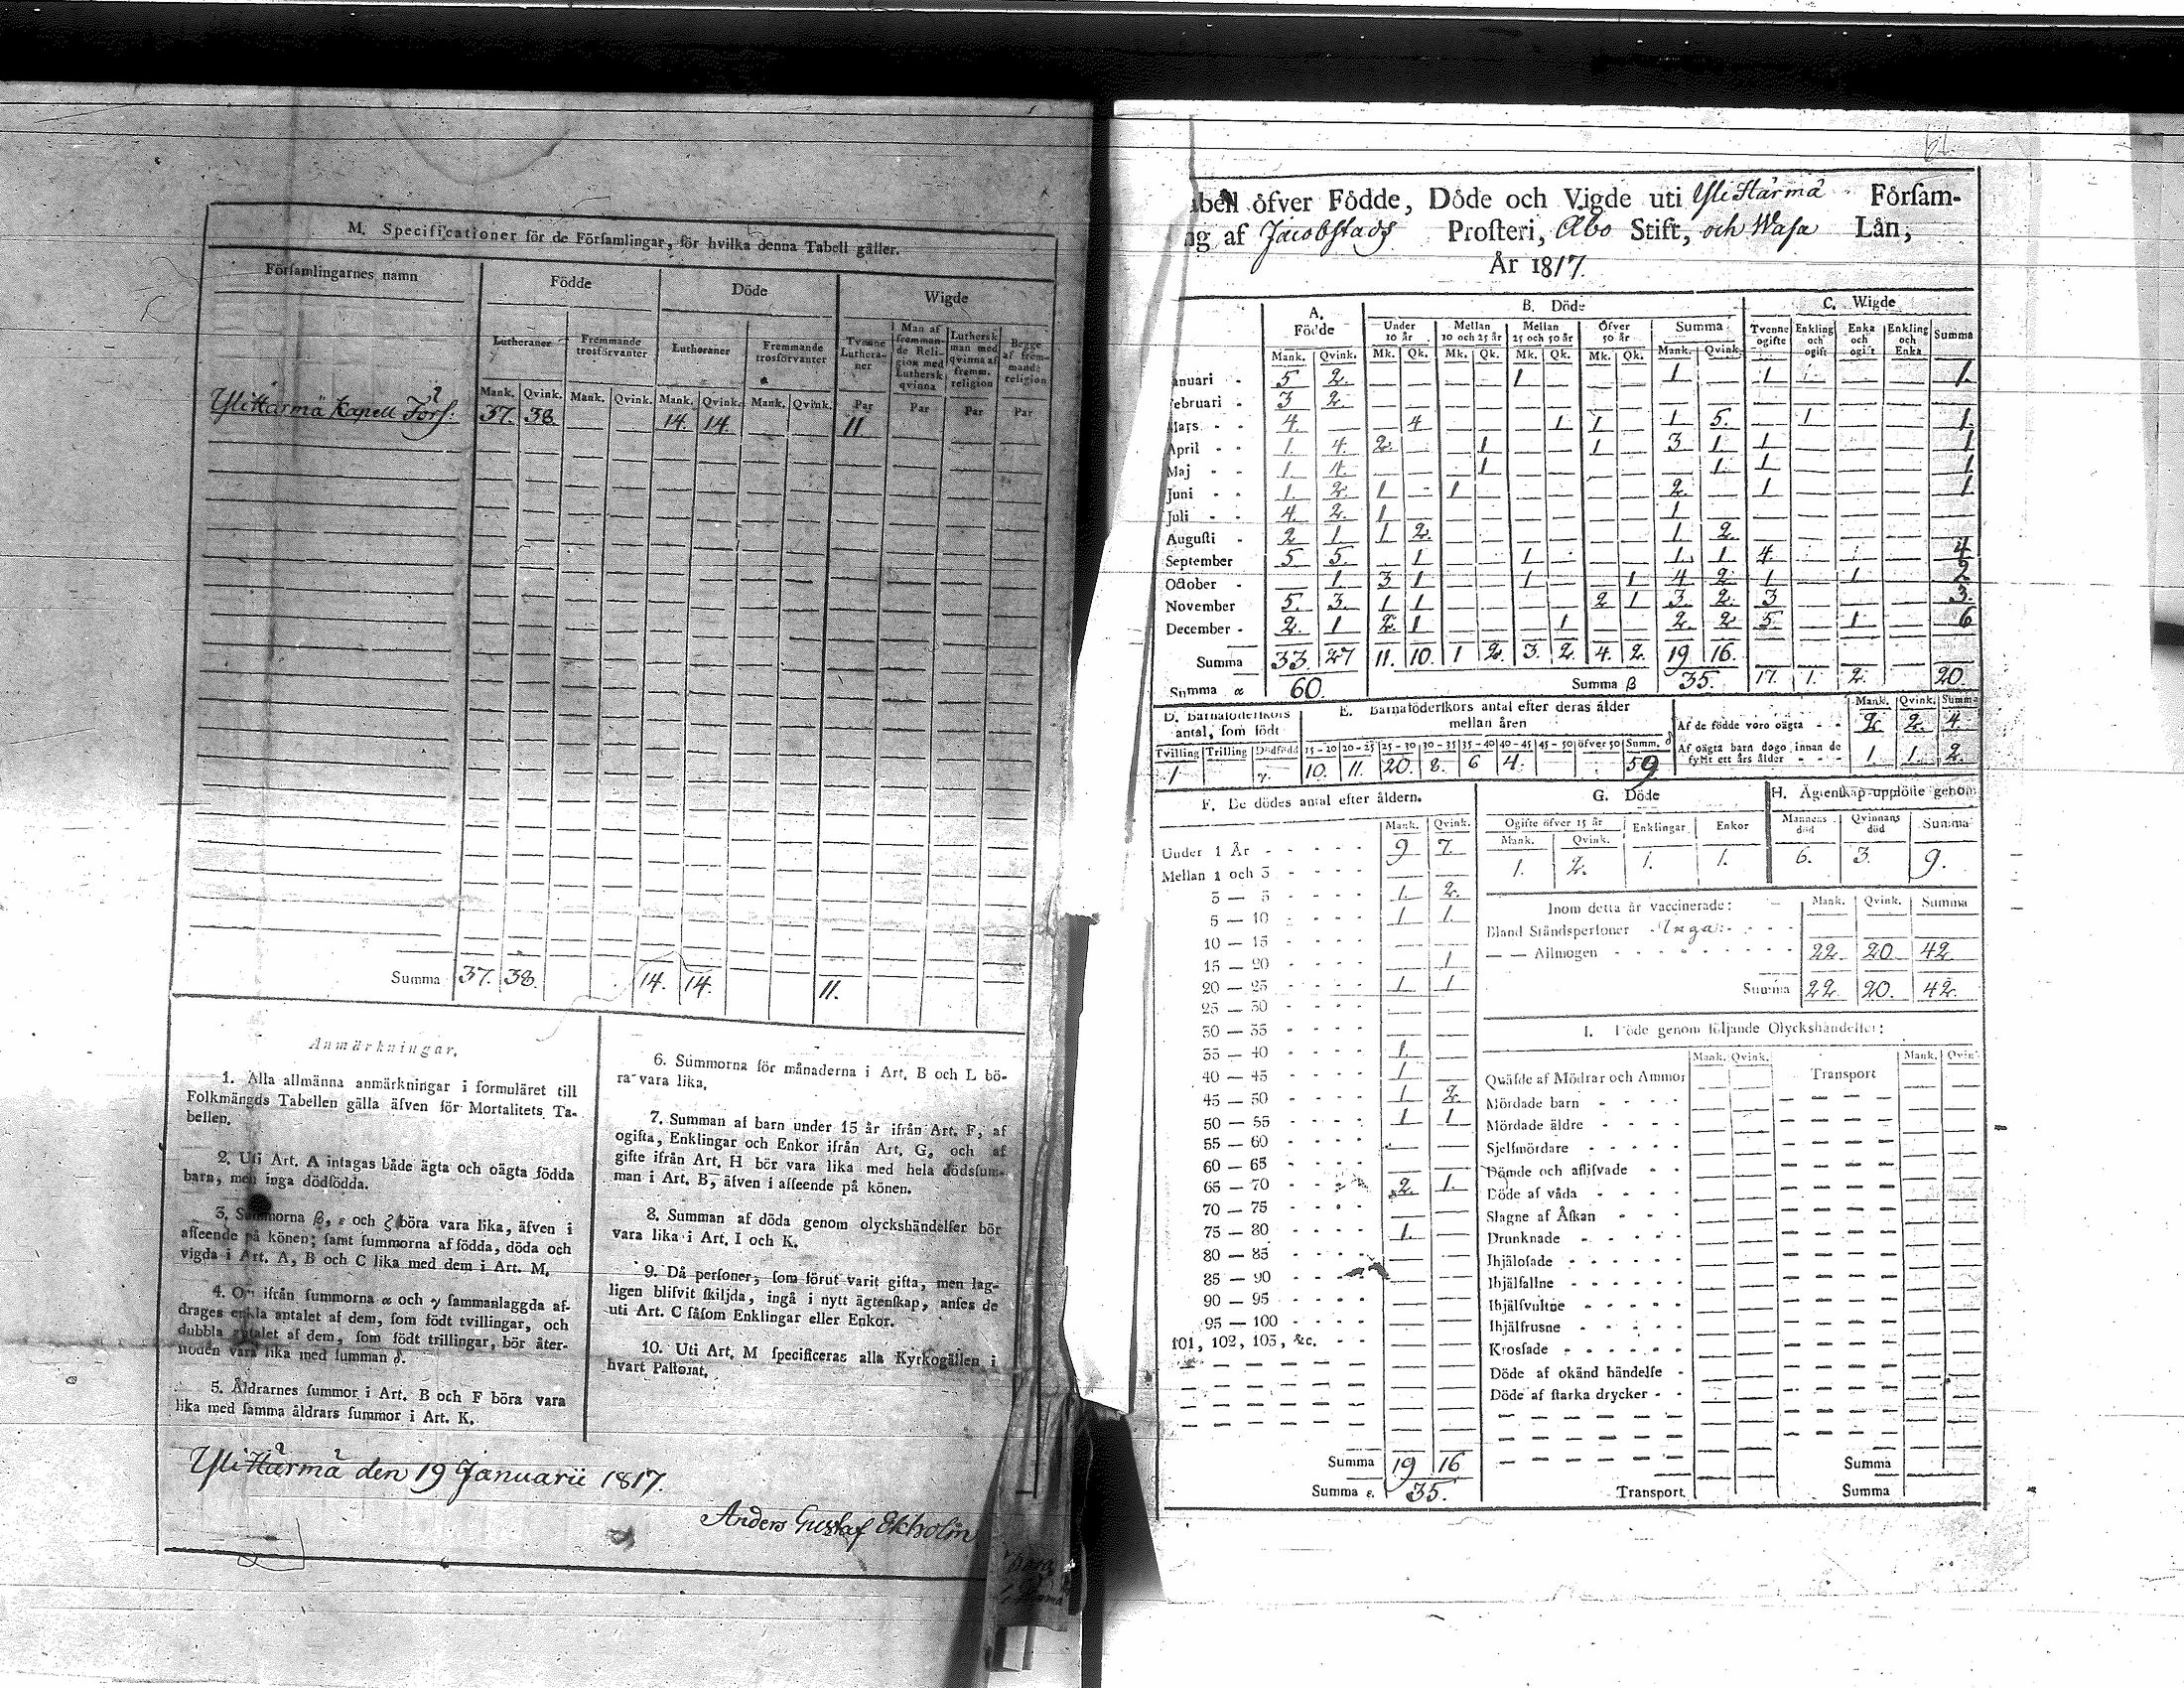 M. Specificationer för de Församlingar, för hvilka denna Tabell gäller.
Församlingarnes namn
Födde
Döde
Wigde
Lutheraner
Fremmande trosförvanter
Lutheraner
Fremmande trosförvanter
Tvenne Lutheraner
Man af fremmande Religion med Luthersk qvinna
Luthersk man med qvinna af fremm. religion
Begge af fremmande religion
Mank. Qvink. Mank. Qvink. Mank. Qvink. Mank. Qvink. Par Par Par Par
YliHärmä Kapell Förs: 37. 38. — — 14. 14. — — 11. — — —
Summa 37. 38. 14. 14. 11.
Anmärkningar.
1. Alla allmänna anmärkningar i formuläret till
Folkmängds Tabellen gälla äfven för Mortalitets Ta-
bellen.
2. Uti Art. A intagas både ägta och oägta födda
barn, men inga dödfödda.
3. Summorna β, ε och ζ böra vara lika, äfven i
afseende på könen; samt summorna af födda, döda och
vigda i Art. A, B och C lika med dem i Art. M.
4. Om ifrån summorna α och γ sammanlaggda af-
drages enkla antalet af dem, som födt tvillingar, och
dubbla antalet af dem, som födt trillingar, bör åter-
stoden vara lika med summan δ.
5. Åldrarnes summor i Art. B och F böra vara
lika med samma åldrars summor i Art. K.
6. Summorna för månaderna i Art. B och L bö-
ra vara lika.
7. Summan af barn under 15 år ifrån Art. F, af
ogifta, Enklingar och Enkor ifrån Art. G, och af
gifte ifrån Art. H bör vara lika med hela dödssum-
man i Art. B, äfven i afseende på könen.
8. Summan af döda genom olyckshändelser bör
vara lika i Art. I och K.
9. Då personer, som förut varit gifta, men lag-
ligen blifvit skiljda, ingå i nytt ägtenskap, anses de
uti Art. C såsom Enklingar eller Enkor.
10. Uti Art. M specificeras alla Kyrkogällen i
hvart Pastorat.
YliHärmä den 19 Januarii 1817.
Anders Gustaf Ekholm
abell öfver Födde, Döde och Vigde uti YliHärmä Försam-
ng af Jacobstads Prosteri, Åbo Stift, och Wasa Län,
År 1817.
A. Födde
B. Döde
C. Wigde
Under 10 år
Mellan 10 och 25 år
Mellan 25 och 50 år
Öfver 50 år
Summa
Tvenne ogifte
Enkling och ogift
Enka och ogift
Enkling och Enka
Summa
Mank. Qvink. Mk. Qk. Mk. Qk. Mk. Qk. Mk. Qk. Mank. Qvink.
anuari 5 2. — — — — 1 — — — 1 — 1 — — — 1.
februari 3 2. — — — — — — — — — — — — — — —
Mars 4. — — 4 — — — 1 1 — 1 5. — 1 — — 1.
April 1. 4. 2. — — 1 — — 1 — 3 1 1 — — — 1
Maj 1. 4. — — — 1 — — — — — 1. 1 — — — 1
Juni 1. 2. 1 — 1 — — — — — 2. — 1 — — — 1
Juli 4. 2. 1 — — — — — — — 1 — — — — — —
Augusti 2 1 1 2. — — — — — — 1 2. — — — — —
September 5 5. — 1 — — 1 — — — 1. 1 4. — — — 4
October — 1. 3 1 — — 1 — — 1 4 2 1 — 1 — 2
November 5. 3. 1 1 — — — — 2 1 3. 2. 3 — — — 3.
December 2. 1 2. 1 — — — 1 — — 2 2 5. — 1 — 6
Summa 33. 27 11. 10. 1 2. 3. 2. 4. 2. 19 16.
Summa α 60. Summa β 35. 17. 1. 2. 20.
D. Barnaföderskors antal, som födt
E. Barnaföderskors antal efter deras ålder mellan åren
Mank. Qvink. Summa
Af de födde voro oägta 2. 2. 4.
Af oägta barn dogo innan de fyllt ett års ålder 1 1. 2.
Tvilling Trilling Dödfödd 15-20 20-25 25-30 30-35 35-40 40-45 45-50 öfver 50 Summ. δ
1 γ. 10. 11. 20. 8. 6 4. 59
F. De dödes antal efter åldern.
Mank. Qvink.
Under 1 År 9 7.
Mellan 1 och 3 — —
3 — 5 1. 2.
5 — 10 1 1.
10 — 15 — —
15 — 20 — 1
20 — 25 1 1
25 — 30 — —
30 — 35 — —
35 — 40 1. —
40 — 45 1 —
45 — 50 1 2.
50 — 55 1 1
55 — 60 — —
60 — 65 — —
65 — 70 2. 1.
70 — 75 — —
75 — 80 1. —
80 — 85 — —
85 — 90 — —
90 — 95 — —
95 — 100 — —
101, 102, 103, &c. — —
Summa 19 16
Summa ε. 35.
G. Döde
Ogifte öfver 15 år Enklingar Enkor
Mank. Qvink.
1. 2. 1. 1.
H. Ägtenskap upplöste genom
Mannens död Qvinnans död Summa
6. 3. 9.
Inom detta år vaccinerade: Mank. Qvink. Summa
Bland Ståndspersoner Inga
— — Allmogen 22 20 42
Summa 22 20. 42.
I. Döde genom följande Olyckshändelser:
Mank. Qvink. Mank. Qvin
Qwäfde af Mödrar och Ammor Transport
Mördade barn
Mördade äldre
Sjelfmördare
Dömde och aflifvade
Döde af våda
Slagne af Åskan
Drunknade
Ihjälosade
Ihjälfallne
Ihjälsvultne
Ihjälfrusne
Krossade
Döde af okänd händelse
Döde af starka drycker
Summa
Transport. Summa